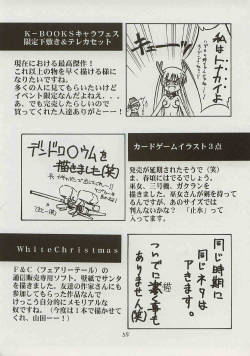 K－BOOKSキャラフェス
限定下敷き＆テレカセット
現在における最高傑作！
これ以上の物を早く描ける様に
なりたいですね。
多くの人に見てもらいたいけど
イベント限定なんだよねえ・・・。
あ、でも完売したらしいので
買ってくれた人達ありがとー！
私は
トナカイよ
キューッ
デンドロ〇ウムを
描きました(笑)
カードゲームイラスト3点
発売が延期されたそうで（笑）
ま、春頃にはでるでしょう。
巫女、三号機、ガクラン
判んないかな？　「止水」って
ます。
WhiteChristmas
F＆C（フェアリーテール）の
通信販売専用ソフト。壁紙でサンタ
を描きました。友達の作家さんにも
参加してもらった作品なんで
けっこう自分的にメモリアルな
奴ですね。（今度は1本で描かせて
くれ、山田ーー！）
同じ時期に
同じネタは
あきます。
ついでに
ありません(笑)